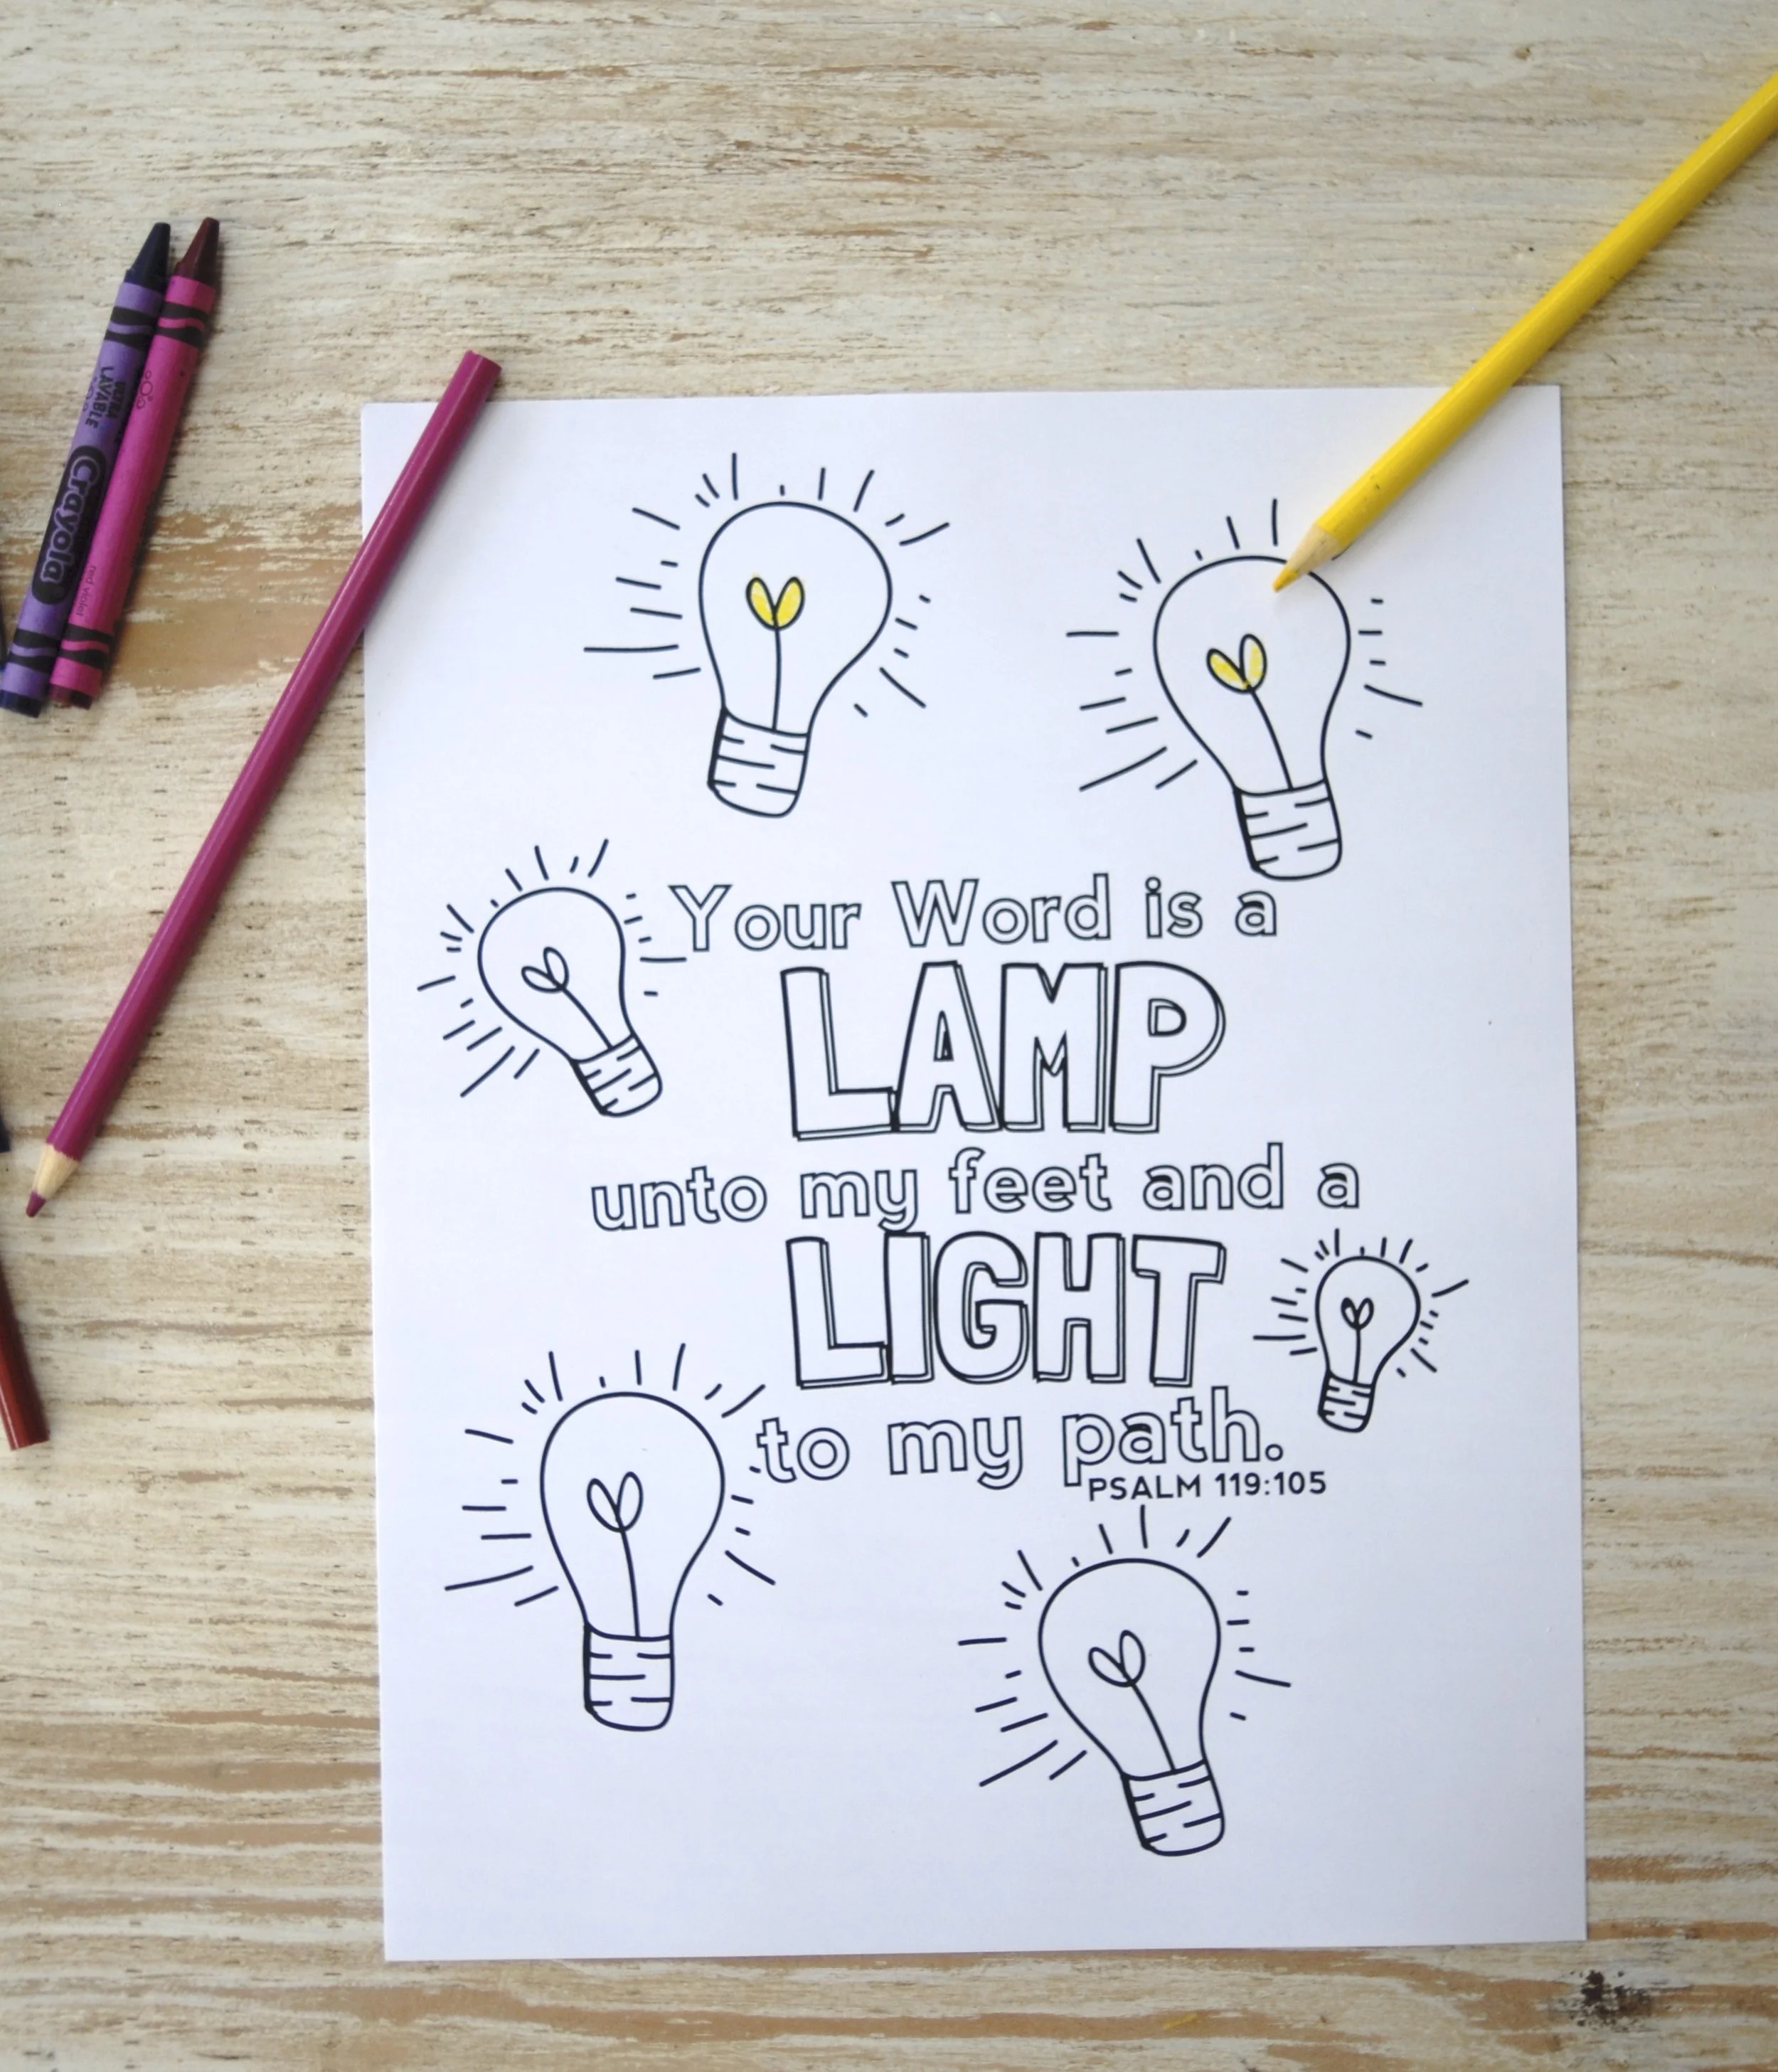 Your Word is a
LAMP
unto my feet and a
LIGHT
to my path.
PSALM 119:105
ULTRA
LAVABLE
Crayola
red violet